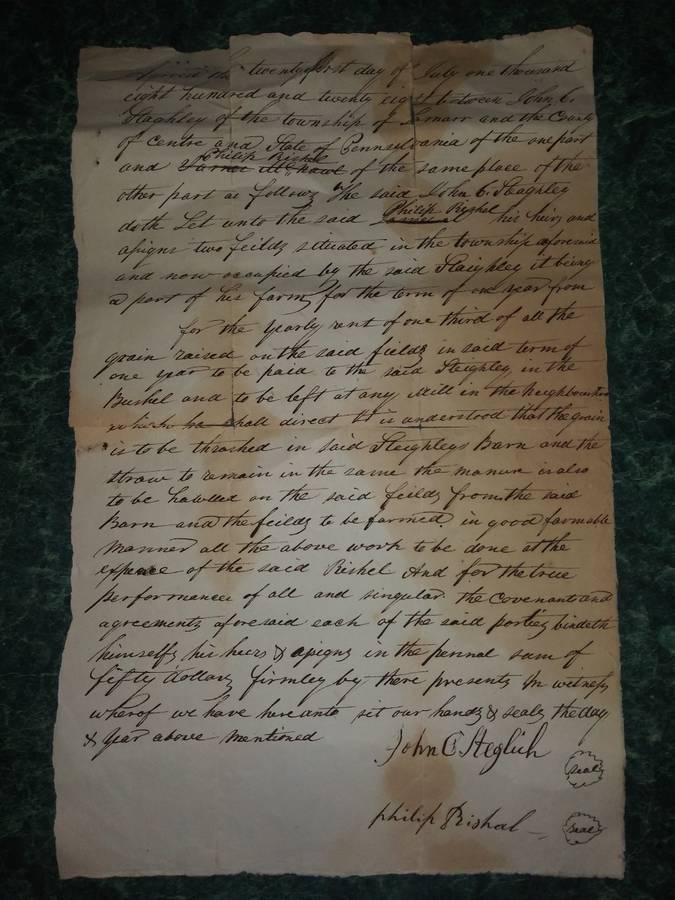 twenty first day of July one thousand
eight hundred and twenty eight between John C.
Staghley of the township of Lamarr and the County
of Centre and State of Pennsylvania of the one part
Philip Rishel
and of the same place of the
other part as follows The said John C. Staghley
Philip Rishel
doth Let unto the said his heirs and
assigns two feilds situated in the township aforesaid
and now occupied by the said Staighley it being
a part of his farm for the term of one year from
for the yearly rent of one third of all the
grain raised on the said fields in said term of
one year to be paid to the said Steighley in the
Bushel and to be left at any Mill in the
which he shall direct it is understood that the grain
is to be thrashed in said Steighleys Barn and the
straw to remain in the same the manur is also
to be hawled on the said feilds from the said
Barn and the feilds to be farmed in good farmable
manner all the above work to be done at the
expence of the said Rishel And for the true
performance of all and singular the Covenants and
agreements aforesaid each of the said parties bindeth
himself his heirs & assigns in the pennal sum of
fifty dollars firmley by these presents In witness
wherof we have hereunto sit our hands & seals the day
& year above mentioned
John C Steglich
seal
philip Rishal
seal